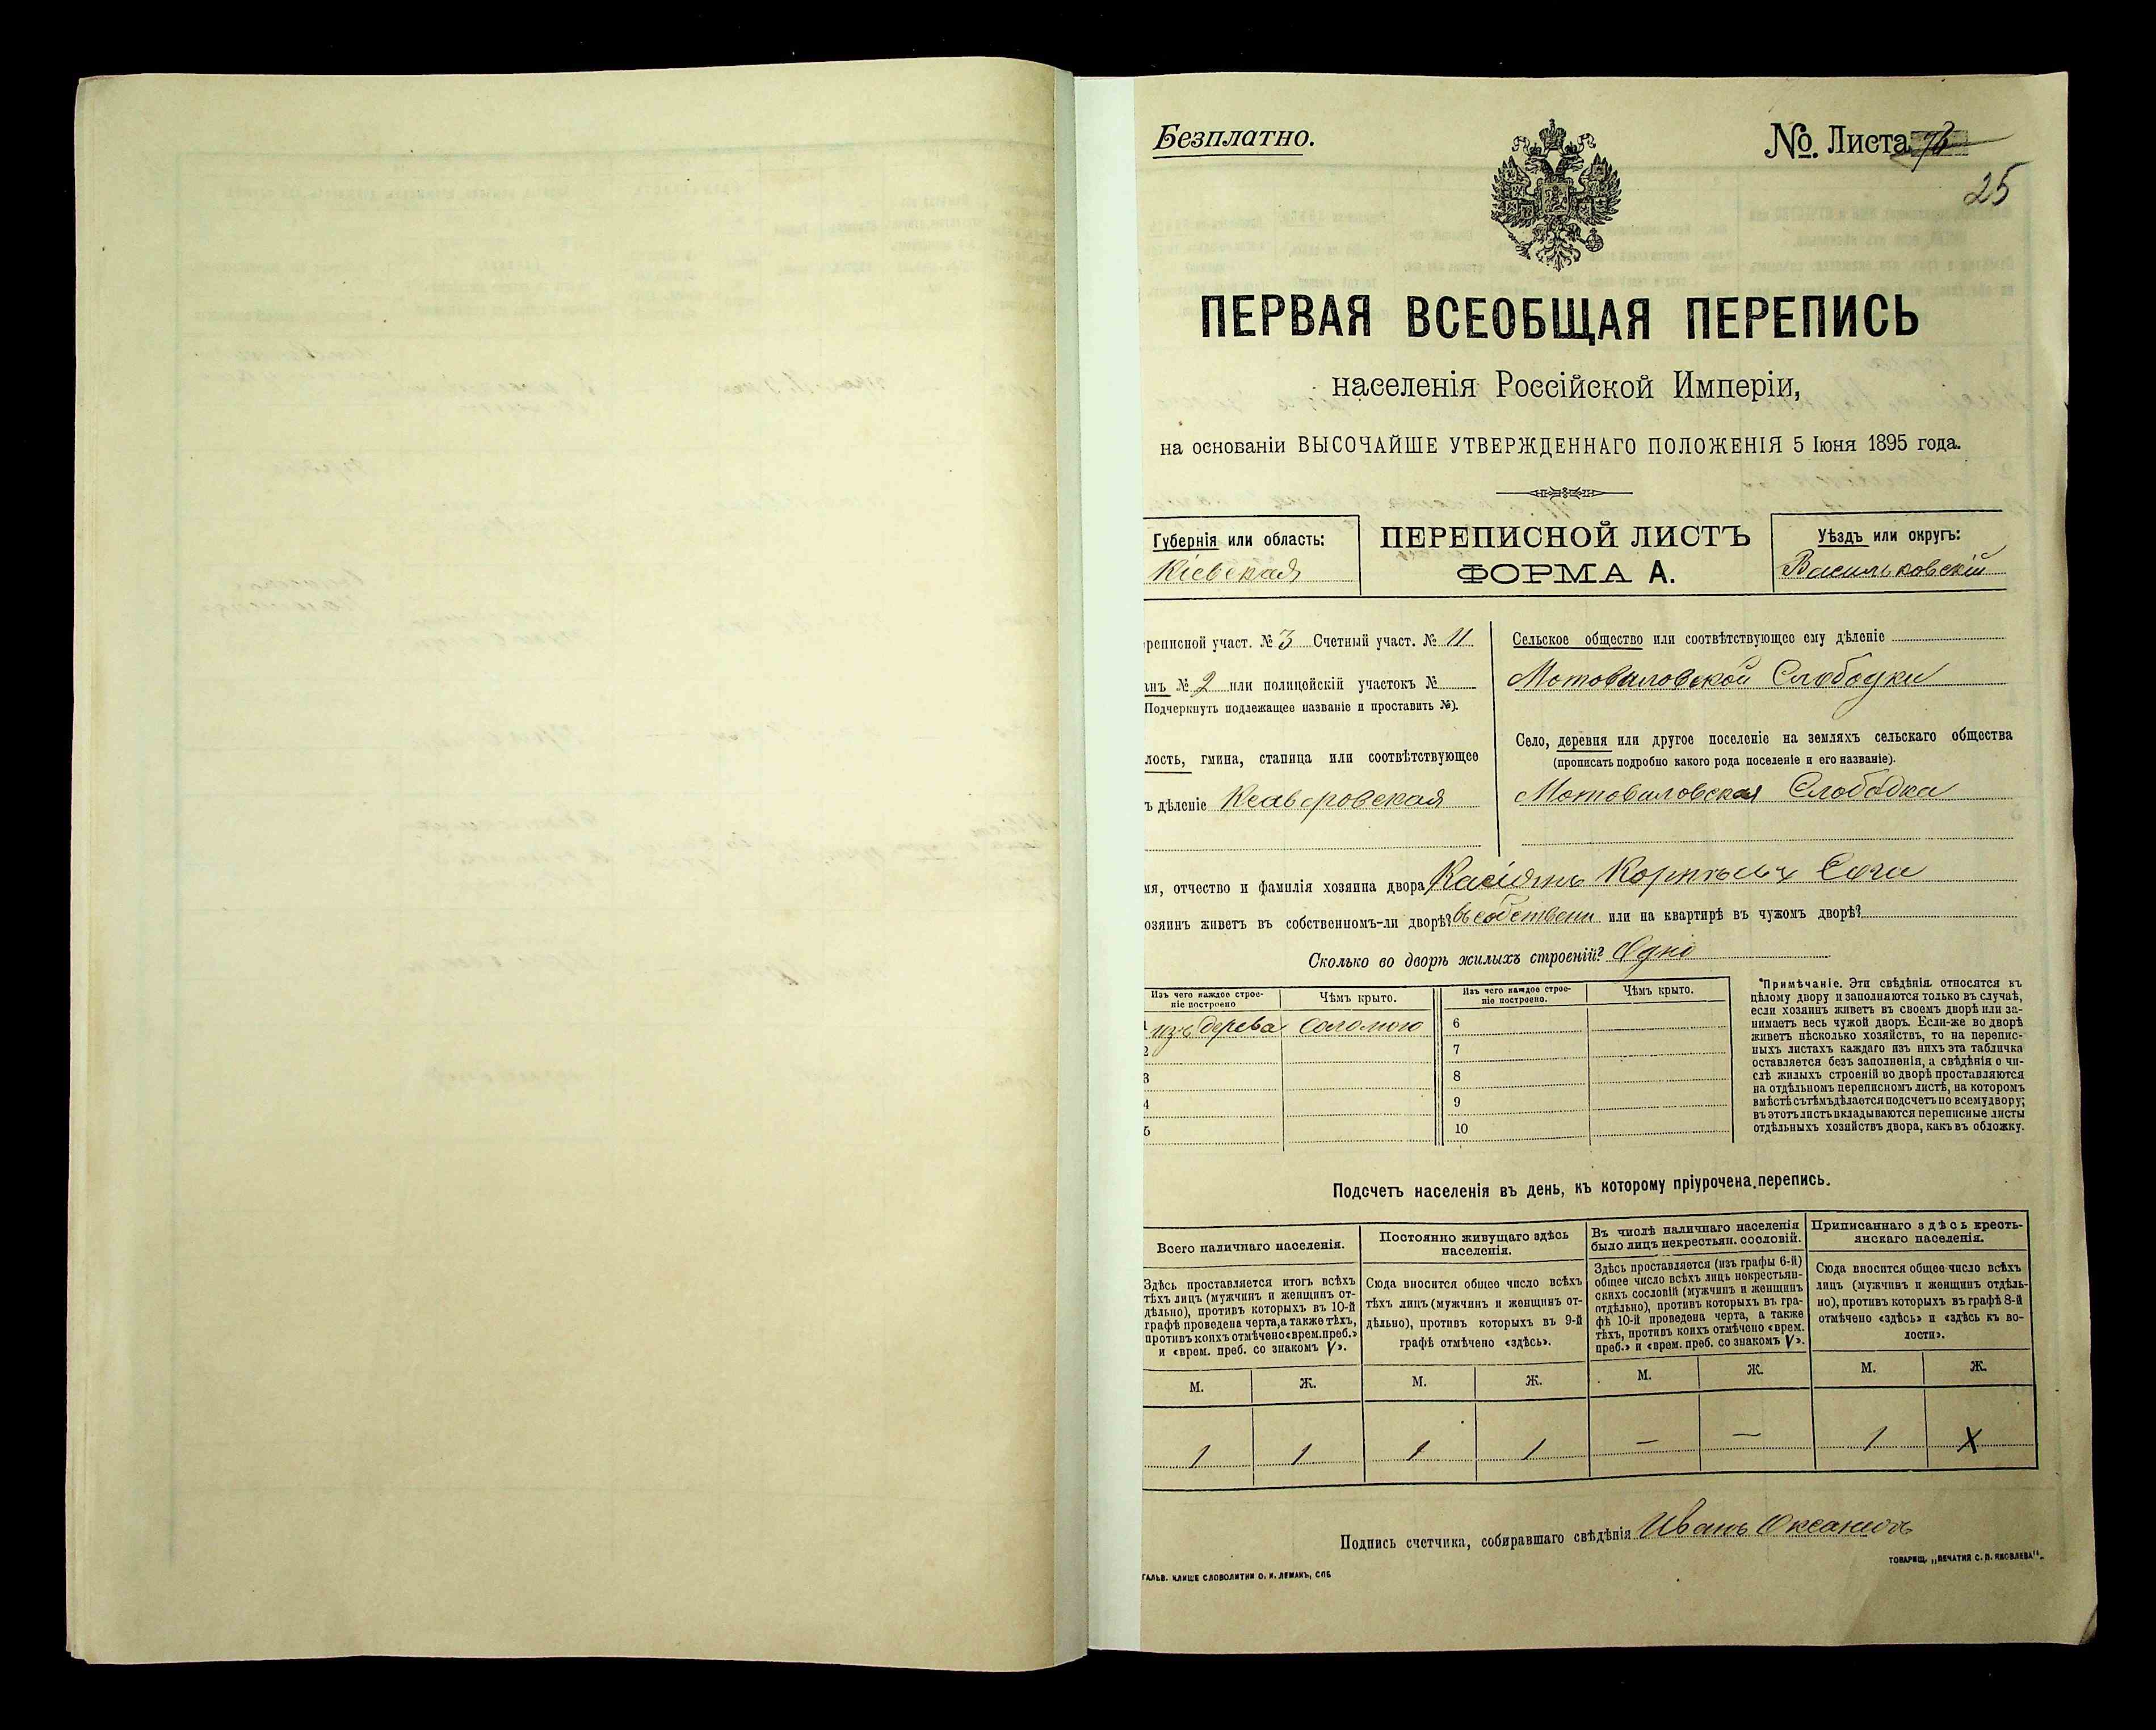 Безплатно.
№ Листа
25
ПЕРВАЯ ВСЕОБЩАЯ ПЕРЕПИСЬ
населенія Россійской Имперіи,
на основаніи ВЫСОЧАЙШЕ УТВЕРЖДЕННАГО ПОЛОЖЕНІЯ 5 Іюня 1895 года.
Губернія или область:
Кіевская
ПЕРЕПИСНОЙ ЛИСТЪ
ФОРМА А.
Уѣздъ или округъ:
Васильковскій
реписной участ. № 3 Счетный участ. № 11
анъ № 2 или полицейскій участокъ №
Подчеркнуть подлежащее названіе и проставить №).
лость, гмина, станица или соотвѣтствующее
ъ дѣленіе Ксаверовская
Сельское общество или соотвѣтствующее ему дѣленіе
Мотовиловской Слободки
Село, деревня или другое поселеніе на земляхъ сельскаго общества
(прописать подробно какого рода поселеніе и его названіе).
Мотовиловская Слободка
мя, отчество и фамилія хозяина двора Касіянъ
озяинъ живетъ въ собственномъ-ли дворѣ? въ собствени или на квартирѣ въ чужомъ дворѣ?
Сколько во дворѣ жилыхъ строеній? Одно
Изъ чего каждое строе-
ніе построено
Чѣмъ крыто.
Изъ чего каждое строе-
ніе построено.
Чѣмъ крыто.
1 изъ дерева соломою 6
2 7
3 8
4 9
5 10
*Примѣчаніе. Эти свѣдѣнія относятся къ
цѣлому двору и заполняются только въ случаѣ,
если хозяинъ живетъ въ своемъ дворѣ или за-
нимаетъ весь чужой дворъ. Если-же во дворѣ
живетъ нѣсколько хозяйствъ, то на перепис-
ныхъ листахъ каждаго изъ нихъ эта табличка
оставляется безъ заполненія, а свѣдѣнія о чи-
слѣ жилыхъ строеній во дворѣ проставляются
на отдѣльномъ переписномъ листѣ, на которомъ
вмѣстѣ съ тѣмъ дѣлается подсчетъ по всему двору;
въ этотъ листъ вкладываются переписные листы
отдѣльныхъ хозяйствъ двора, какъ въ обложку.
Подсчетъ населенія въ день, къ которому пріурочена перепись.
Всего наличнаго населенія.
Здѣсь проставляется итогъ всѣхъ
тѣхъ лицъ (мужчинъ и женщинъ от-
дѣльно), противъ которыхъ въ 10-й
графѣ проведена черта, а также тѣхъ,
противъ коихъ отмѣчено «врем. преб.»
и «врем. преб. со знакомъ V».
Постоянно живущаго здѣсь
населенія.
Сюда вносится общее число всѣхъ
тѣхъ лицъ (мужчинъ и женщинъ от-
дѣльно), противъ которыхъ въ 9-й
графѣ отмѣчено «здѣсь».
Въ числѣ наличнаго населенія
было лицъ некрестьян. сословій.
Здѣсь проставляется (изъ графы 6-й)
общее число всѣхъ лицъ некрестьян-
скихъ сословій (мужчинъ и женщинъ
отдѣльно), противъ которыхъ въ гра-
фѣ 10-й проведена черта, а также
тѣхъ, противъ коихъ отмѣчено «врем.
преб.» и «врем. преб. со знакомъ V».
Приписаннаго здѣсь кресть-
янскаго населенія.
Сюда вносится общее число всѣхъ
лицъ (мужчинъ и женщинъ отдѣль-
но), противъ которыхъ въ графѣ 8-й
отмѣчено «здѣсь» и «здѣсь къ во-
лости».
М. Ж. М. Ж. М. Ж. М. Ж.
1 1 1 1 — — 1 X
Подпись счетчика, собиравшаго свѣдѣнія Иванъ
ТОВАРИЩ. „ПЕЧАТНЯ С. П. ЯКОВЛЕВА".
ГАЛЬВ. КЛИШЕ СЛОВОЛИТНИ О. И. ЛЕМАНЪ, СПБ